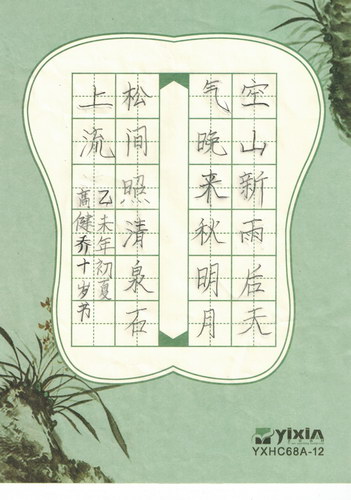 空山新雨后天
气晚来秋明月
松间照清泉石
上流
乙未年初夏
高健乔十岁书
yixin
YXHC68A-12